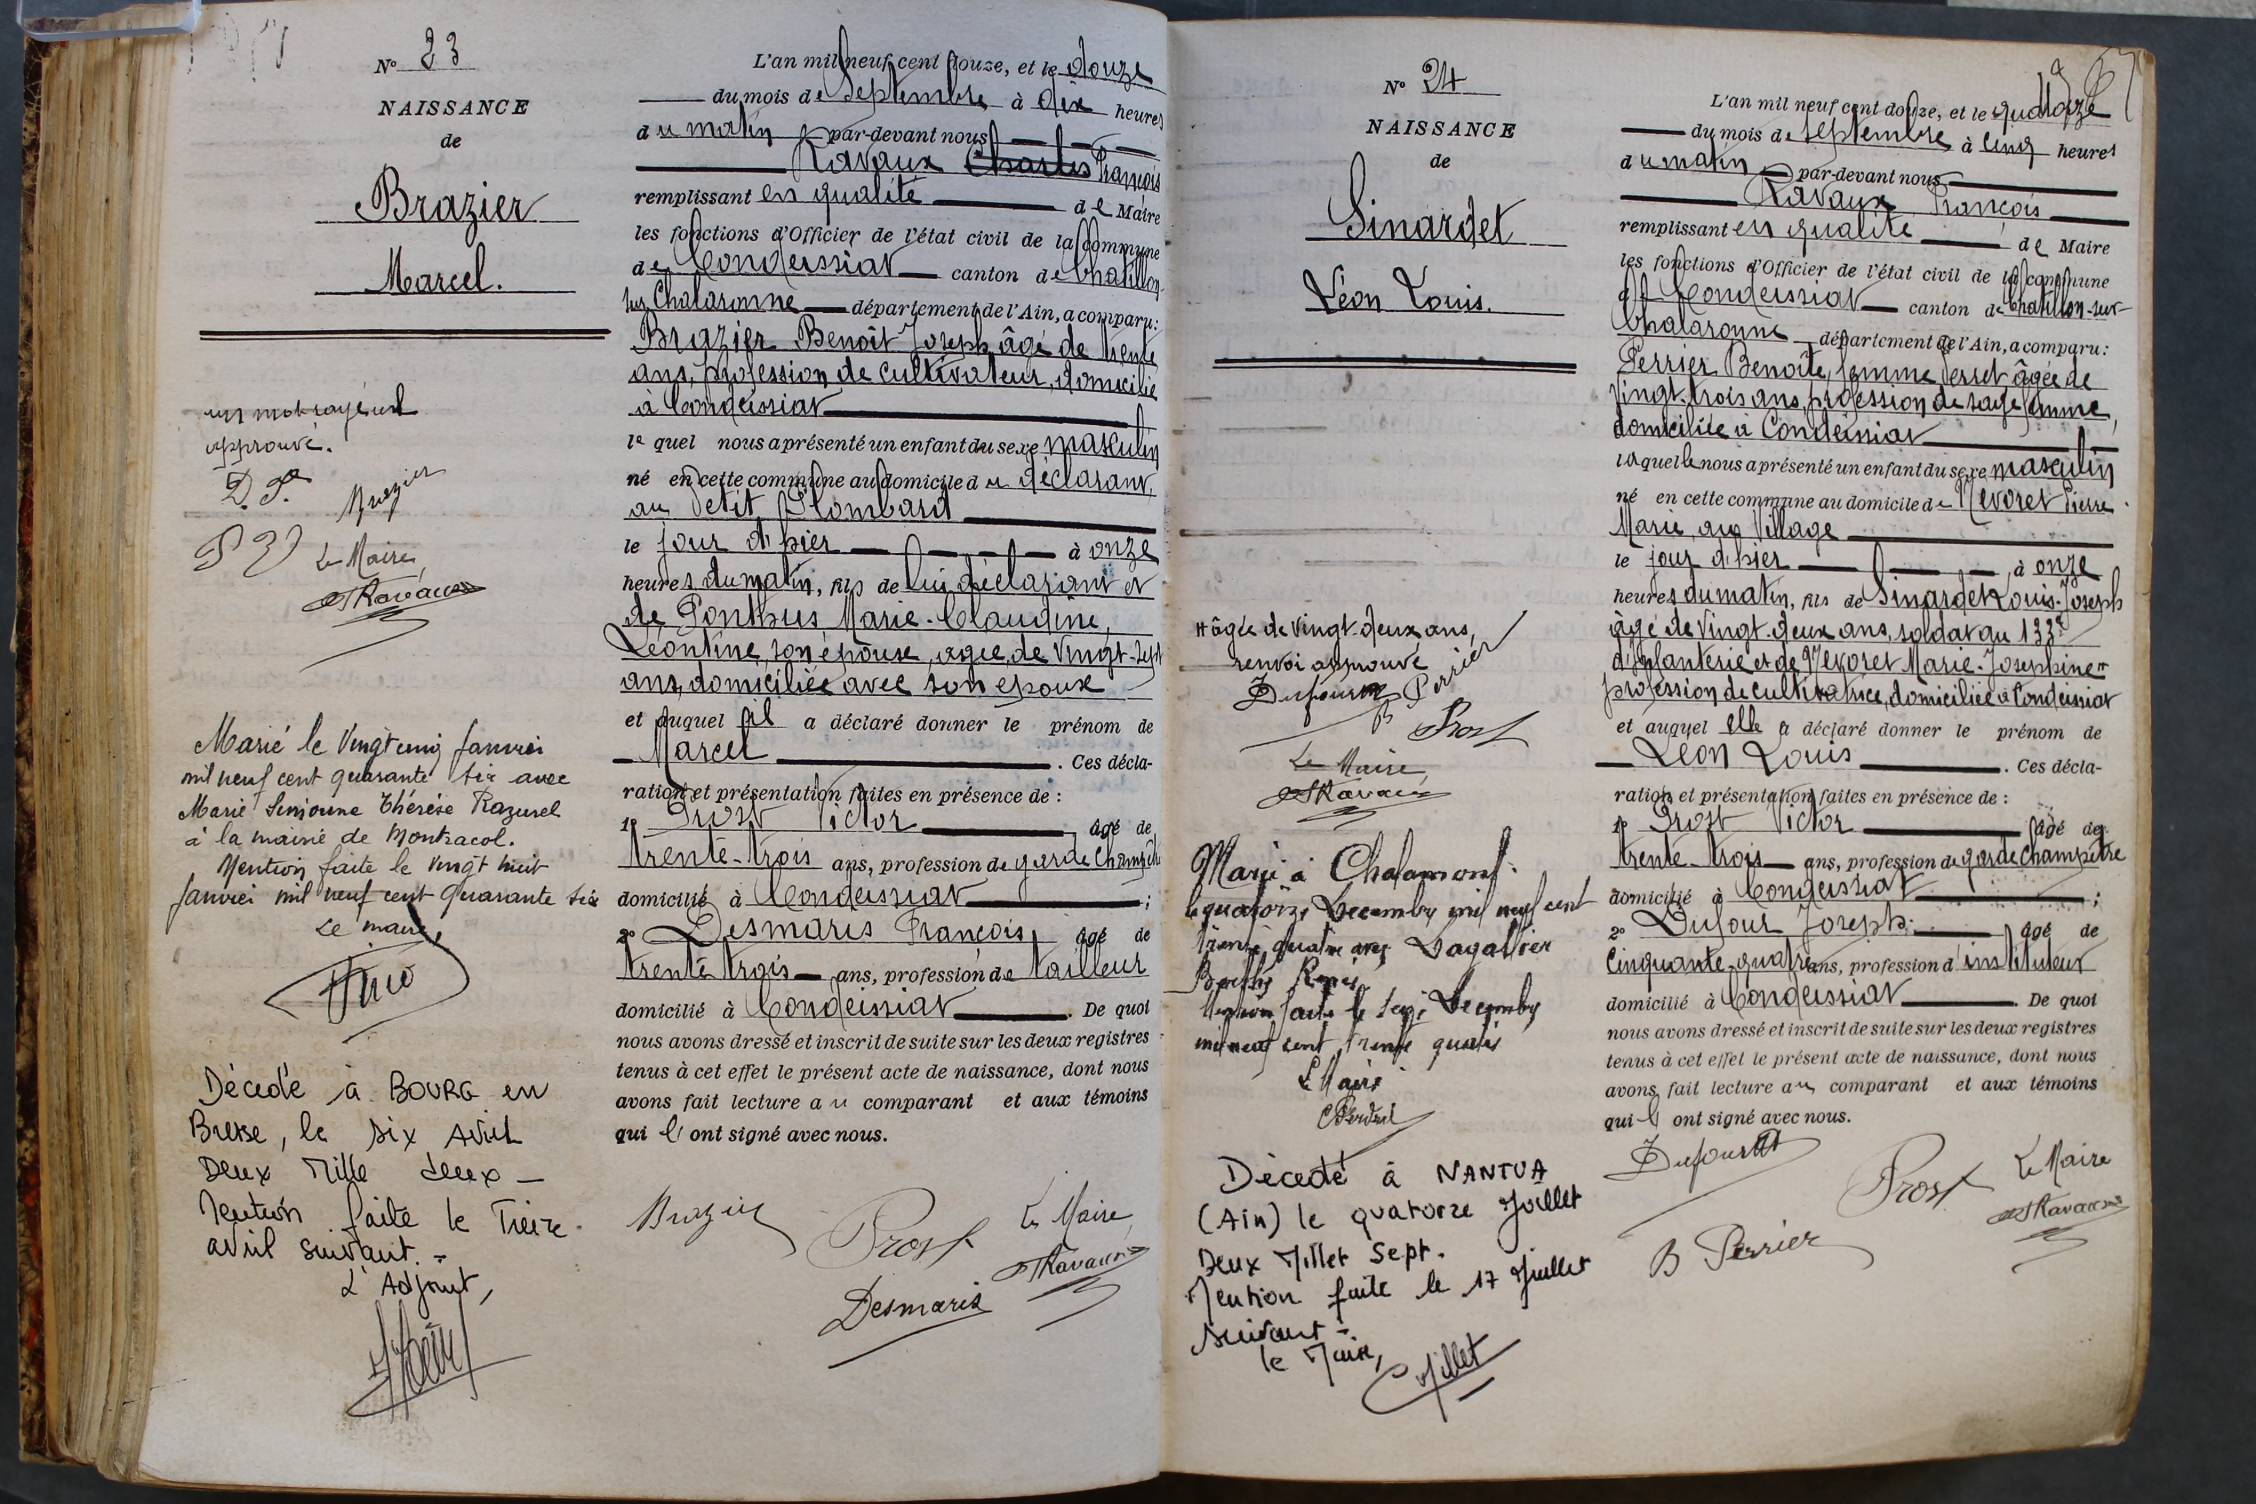 N° 23
NAISSANCE
de
Brazier
Marcel.
un mot rayé nul
approuvé.
D. J.
Brazier
P V
Le Maire,
Ravaux
Marié le Vingt cinq Janvier
mil neuf cent quarante six avec
Marie Thérèse Razurel
à la mairie de Montracol.
Mention faite le vingt huit
Janvier mil neuf cent quarante six
Le maire,
Décédé à BOURG en
Bresse, le six Avril
Deux Mille deux —
Mention faite le Treize
avril suivant. -
L'Adjoint,
L'an mil neuf cent douze, et le douze
du mois de Septembre à dix heures
du matin par-devant nous
Ravaux Charles François
remplissant en qualité de Maire
les fonctions d'Officier de l'état civil de la commune
de Condeissiat canton de Chatillon-
sur Chalaronne département de l'Ain, a comparu:
Brazier Benoît Joseph âgé de trente
ans, profession de cultivateur, domicilié
à Condeissiat
le quel nous a présenté un enfant du sexe masculin
né en cette commune au domicile du déclarant,
au Petit Plombard
le jour d'hier à onze
heures du matin, fils de lui déclarant et
de Ponthus Marie-Claudine,
Léontine, son épouse, agée de Vingt-sept
ans, domiciliée avec son époux
et auquel il a déclaré donner le prénom de
Marcel . Ces décla-
ration et présentation faites en présence de :
1° Prost Victor âgé de
trente-trois ans, profession de garde champêtre
domicilié à Condeissiat ;
2° Desmaris François, âgé de
trente-trois ans, profession de tailleur
domicilié à Condeissiat . De quoi
nous avons dressé et inscrit de suite sur les deux registres
tenus à cet effet le présent acte de naissance, dont nous
avons fait lecture au comparant et aux témoins
qui l'ont signé avec nous.
Brazier
Prost
Le Maire,
Ravaux
Desmaris
N° 24
NAISSANCE
de
Sinardet
Léon Louis.
# âgée de vingt-deux ans,
renvoi approuvé
Dufour
Perrier
Prost
Le Maire,
Ravaux
Marié à Chalamont
le quatorze Décembre mil neuf cent
trente quatre avec Lagallier
Berthe Renée
Mention faite le seize Décembre
mil neuf cent trente quatre
Le Maire
Décédé à NANTUA
(Ain) le quatorze Juillet
Deux Millet Sept.
Mention faite le 17 Juillet
suivant -
le Maire,
Millet
L'an mil neuf cent douze, et le quatorze
du mois de septembre à cinq heures
du matin par-devant nous
Ravaux François
remplissant en qualité de Maire
les fonctions d'Officier de l'état civil de la commune
de Condeissiat canton de Chatillon-sur-
Chalaronne département de l'Ain, a comparu:
Perrier Benoîte, femme Perret âgée de
Vingt-trois ans, profession de sage femme,
domiciliée à Condeissiat
laquelle nous a présenté un enfant du sexe masculin
né en cette commune au domicile de Nevoret Pierre
Marie, au Village
le jour d'hier à onze
heures du matin, fils de Sinardet Louis-Joseph
âgé de Vingt-deux ans, soldat au 133e
d'Infanterie et de Nevoret Marie-Josephine #
profession de cultivatrice, domiciliée à Condeissiat
et auquel elle a déclaré donner le prénom de
Léon Louis . Ces décla-
ration et présentation faites en présence de :
1° Prost Victor âgé de
trente-trois ans, profession de garde champêtre
domicilié à Condeissiat ;
2° Dufour Joseph âgé de
Cinquante-quatre ans, profession d'instituteur
domicilié à Condeissiat . De quoi
nous avons dressé et inscrit de suite sur les deux registres
tenus à cet effet le présent acte de naissance, dont nous
avons fait lecture au comparant et aux témoins
qui l'ont signé avec nous.
Dufour
Prost
Le Maire
Ravaux
B Perrier